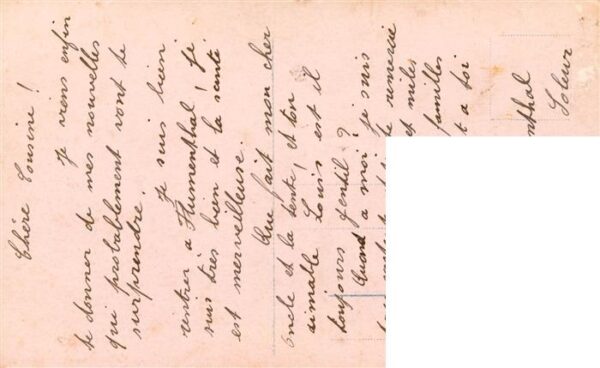 Chère Cousine!
Je viens enfin
te donner de mes nouvelles
qui probablement vont te
surprendre.
Je suis bien
rentrer a Heumenthal! Je
suis très bien et la santé
est merveilleuse.
Que fait mon cher
oncle et la tente! et ton
aimable Louis est il
toujours gentil?
Quand a moi je suis
te remercie
et milles
familles
t a toi
nthal
Soleur